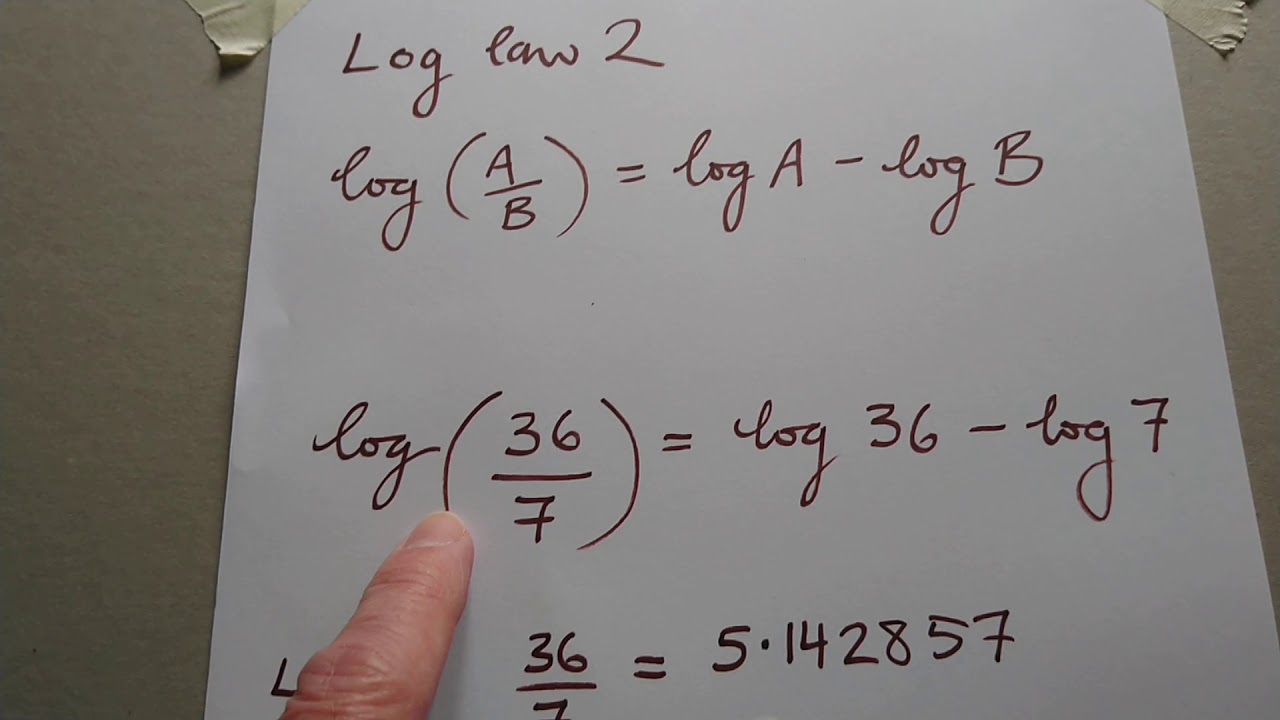 Log law 2
log (A/B) = log A - log B
log (36/7) = log 36 - log 7
L 36/7 = 5.142857